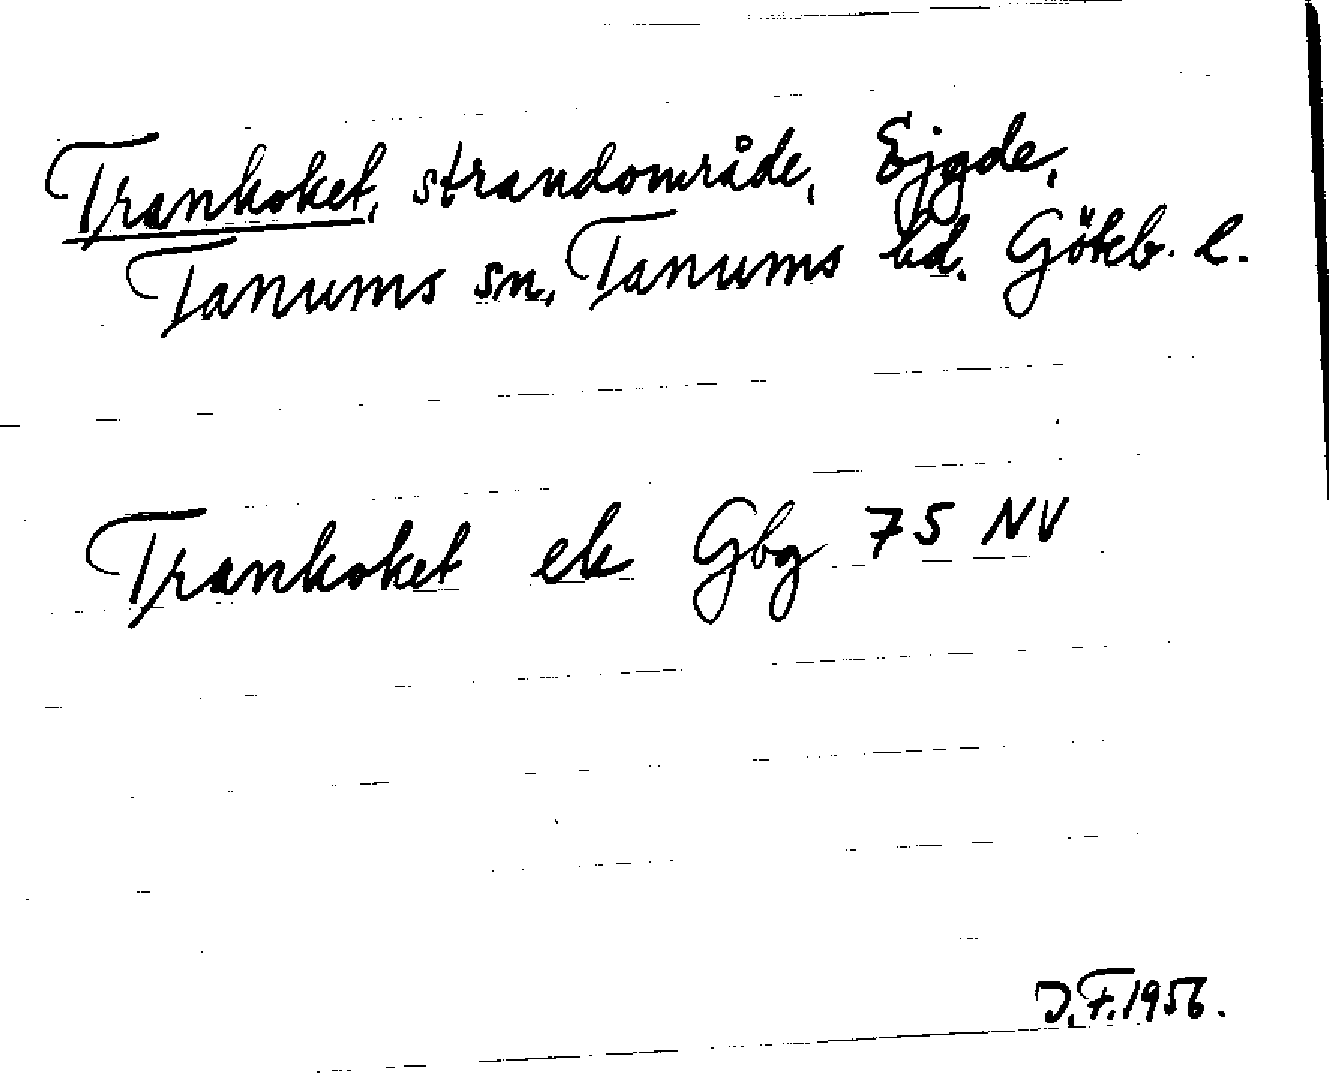 Trankoket, strandområde, Ejgde,
Tanums sn, Tanums hd. Göteb. l.
Trankoket ek Gbg 75 NV
J.F. 1956.